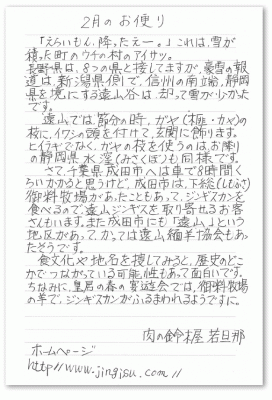 2月のお便り
「えらいもん、降ったえー。」これは、雪が
積った町のウチの村のアイサツ。
長野県は、8つの県と接してますが、豪雪の報
道は、新潟県側で、信州の南端、静岡
県を境にする遠山谷は、却って雪が少なかった
です。
遠山では、節分の時、ガヤ(榧・カヤ)の
枝に、イワシの頭を付けて、玄関に飾ります。
ヒイラギでなく、ガヤの枝を使うのは、お隣り
の静岡県水窪(みさくぼ)も同様です。
さて、千葉県成田市へは車で8時間く
らいかかると思うけど、成田市は、下総(しもうさ)
御料牧場があったこともあって、ジンギスカンを
食べるので、遠山ジンギスを取り寄せるお客
さんもいます。また成田市にも「遠山」という
地区があって、かつては遠山緬羊協会もあっ
たそうです。
食文化や地名を捜してみると、歴史のどこ
かでつながっている可能性もあって面白いです。
ちなみに、皇居の春の園遊会では、御料牧場
の羊で、ジンギスカンがふるまわれるようですに。
肉の鈴木屋 若旦那
ホームページ
http://www.jingisu.com//